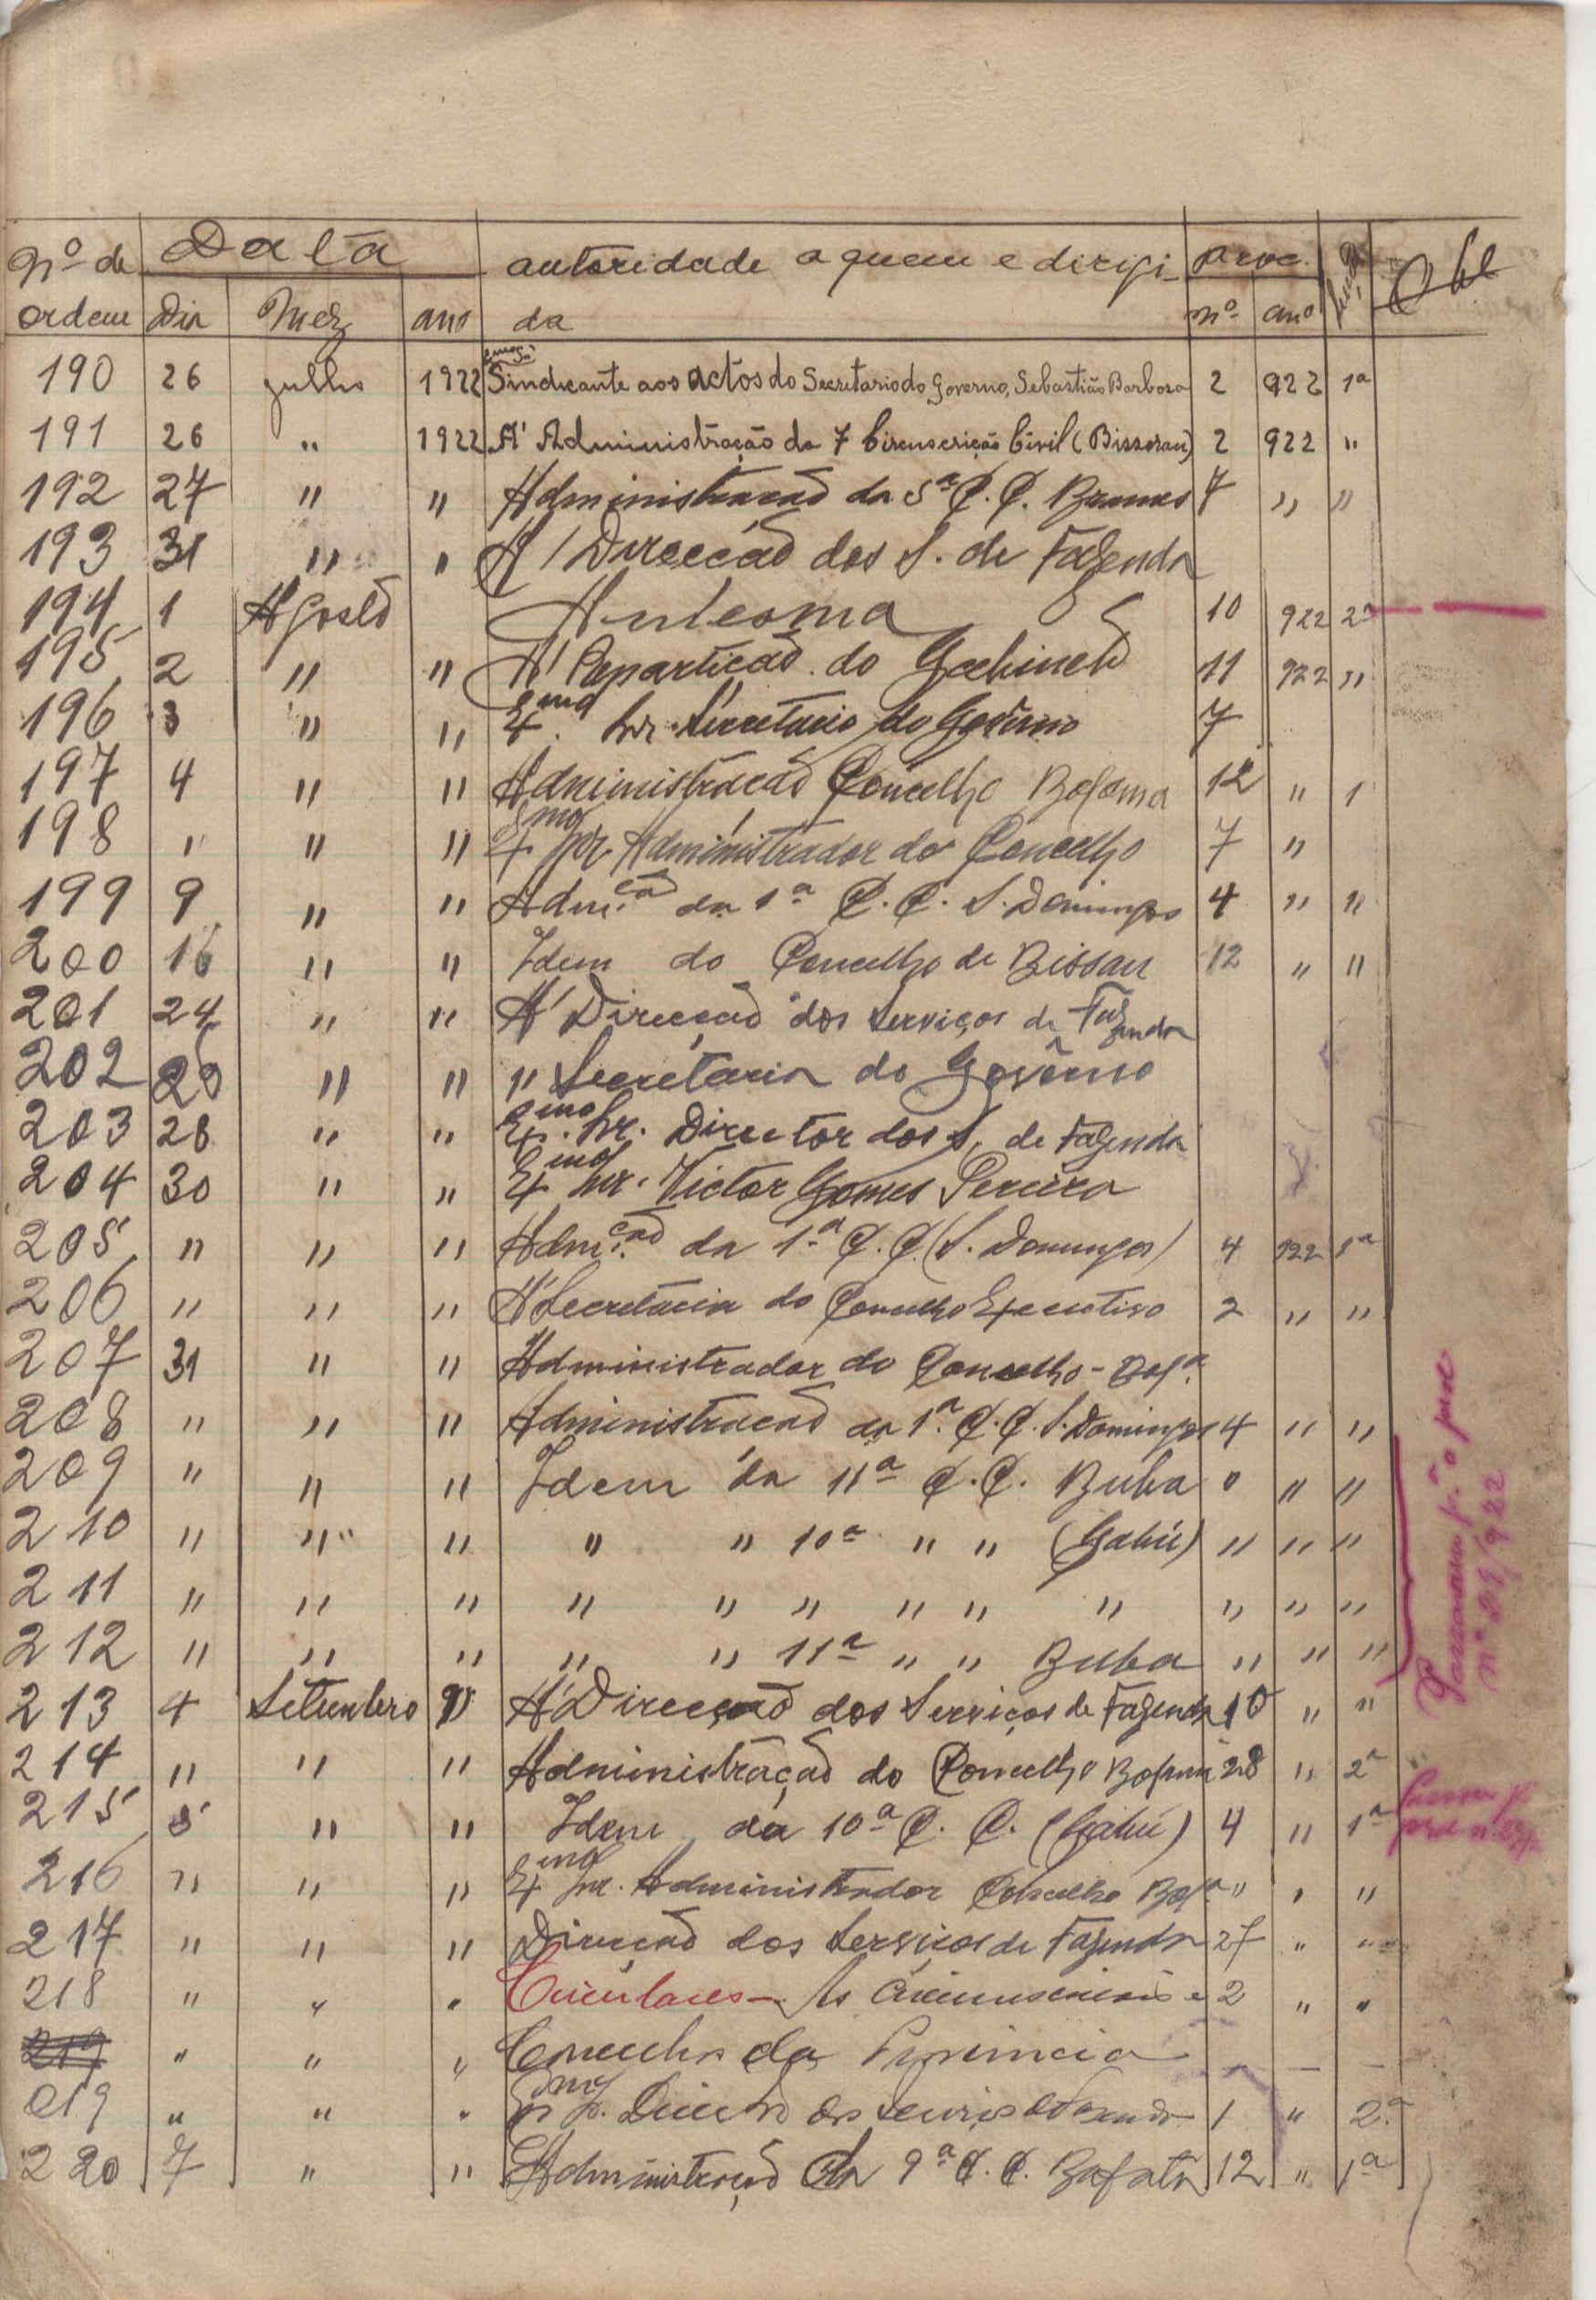 Nº de Data autoridade a quem e dirigi- Proc. Obs
ordem Dia Mez ano da nº ano
190 26 Julho 1922 Sindicante aos actos do Secretario do Governo, Sebastião Barbosa 2 922 1ª
191 26 " 1922 A' Administração da 7 Circunscrição Civil (Bissoran) 2 922 "
192 27 " " Administracão da 5ª C. C. Brames 4 " "
193 31 " " A' Direccão dos S. de Fazenda
194 1 Agosto A mesma 10 922 2ª
195 2 " " A' Reparticão do Gabinete 11 922 "
196 3 " " Exmo Snr. Secretario do Govêrno 7
197 4 " " Administracão Concelho Bolama 12 " 1
198 " " " Exmo Snr Administrador do Concelho 7 "
199 9 " " Adm.cão da 1ª C. C. S. Domingos 4 " "
200 16 " " Idem do Concelho de Bissau 12 " "
201 24 " " A' Direcção dos Serviços de Fazenda
202 26 " " " Secretaria do Govêrno
203 28 " " Exmo. Snr. Director dos S. de Fazenda
204 30 " " Exmo Snr. Victor Gomes Pereira
205 " " " Adm.cão da 1ª C. C. (S. Domingos) 4 922 1ª
206 " " " A' Secretaria do Conselho Executivo 2 " "
207 31 " " Administrador do Concelho - Bolª.
208 " " " Administracão da 1ª. C. C. S. Domingos 4 " "
209 " " " Idem da 11ª C. C. Buba " " "
210 " " " " " 10ª " " (Gabú) " " "
211 " " " " " " " " " " " "
212 " " " " " 11ª " " Buba " " "
213 4 Setembro " A' Direcção dos Serviços de Fazenda 10 " "
214 " " " Administração do Concelho Bolama 28 " 2ª
215 5 " " Idem da 10ª C. C. (Gabú) 4 " 1ª
216 " " " Exmo Snr. Administrador Concelho Bolª " " "
217 " " " Direcção dos Serviços de Fazenda 27 " "
218 " " " Circulares - As Circunscrições e 2 " "
219 " " " Concelhos da Provincia - - -
219 " " " Exmo Sr. Director dos Serviços de Fazenda 1 " 2ª
220 7 " " Administração da 9ª C. C. Bafatá 12 " 1ª
Passaram p.ª o proc.
nº 29/922